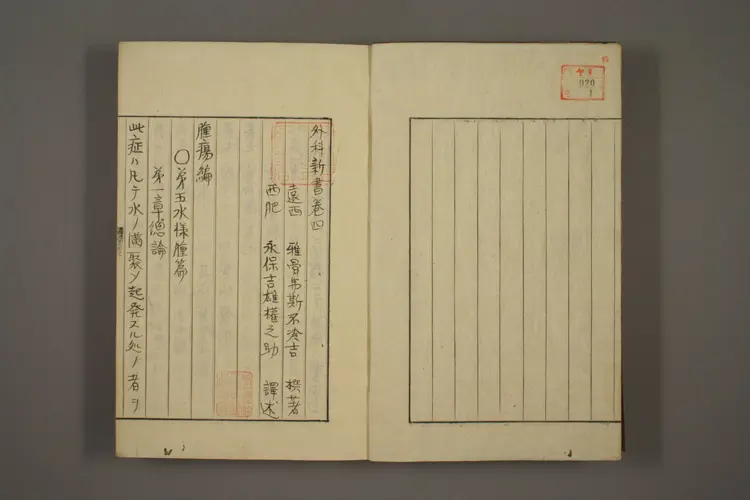 外科新書巻四
遠西 雅骨弗斯不冷吉 撰著
西肥 永保吉雄權之助 譯述
腫瘍編
〇第五水様腫篇
第一章總論
此症ハ凡テ水ノ滿聚ソ起発スル処ノ者ヲ
920
1